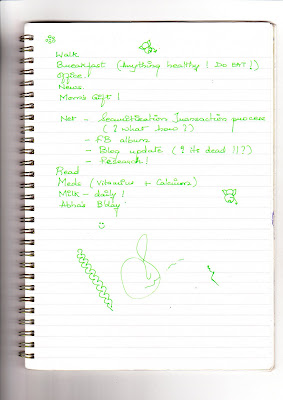 Walk
Breakfast (Anything healthy! Do EAT!)
Office!
News.
Mom's Gift!
Net - Securitization Transaction process
(? What how?)
- FB album
- Blog update (? its dead!!?)
- Research!
Read
Meds (Vitamins + Calcium)
MILK - daily!
Abha's B'day